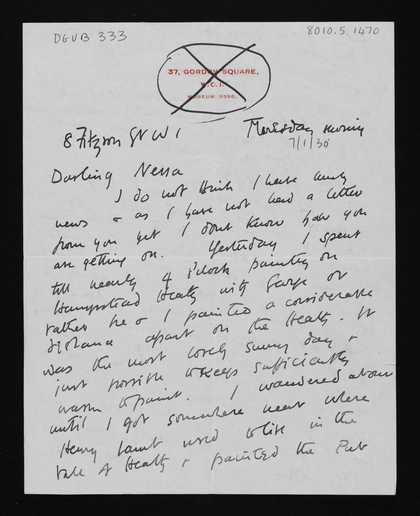 DGVB 333
8010.5.1470
37, GORDON SQUARE,
W.C.1.
8 Fitzroy St W1
morning
7/1/30
Darling Nessa
I do not think I have any
news & as I have not had a letter
from you yet I dont know how you
are getting on. Yesterday I spent
till nearly 4 o'clock painting on
Hampstead Heath with George or
rather he & I painted a considerable
distance apart on the Heath. It
was the most lovely sunny day &
just possible to keep sufficiently
warm to paint. I wandered about
until I got somewhere near where
Henry Lamb used to live in the
Vale of Heath & painted the Pub